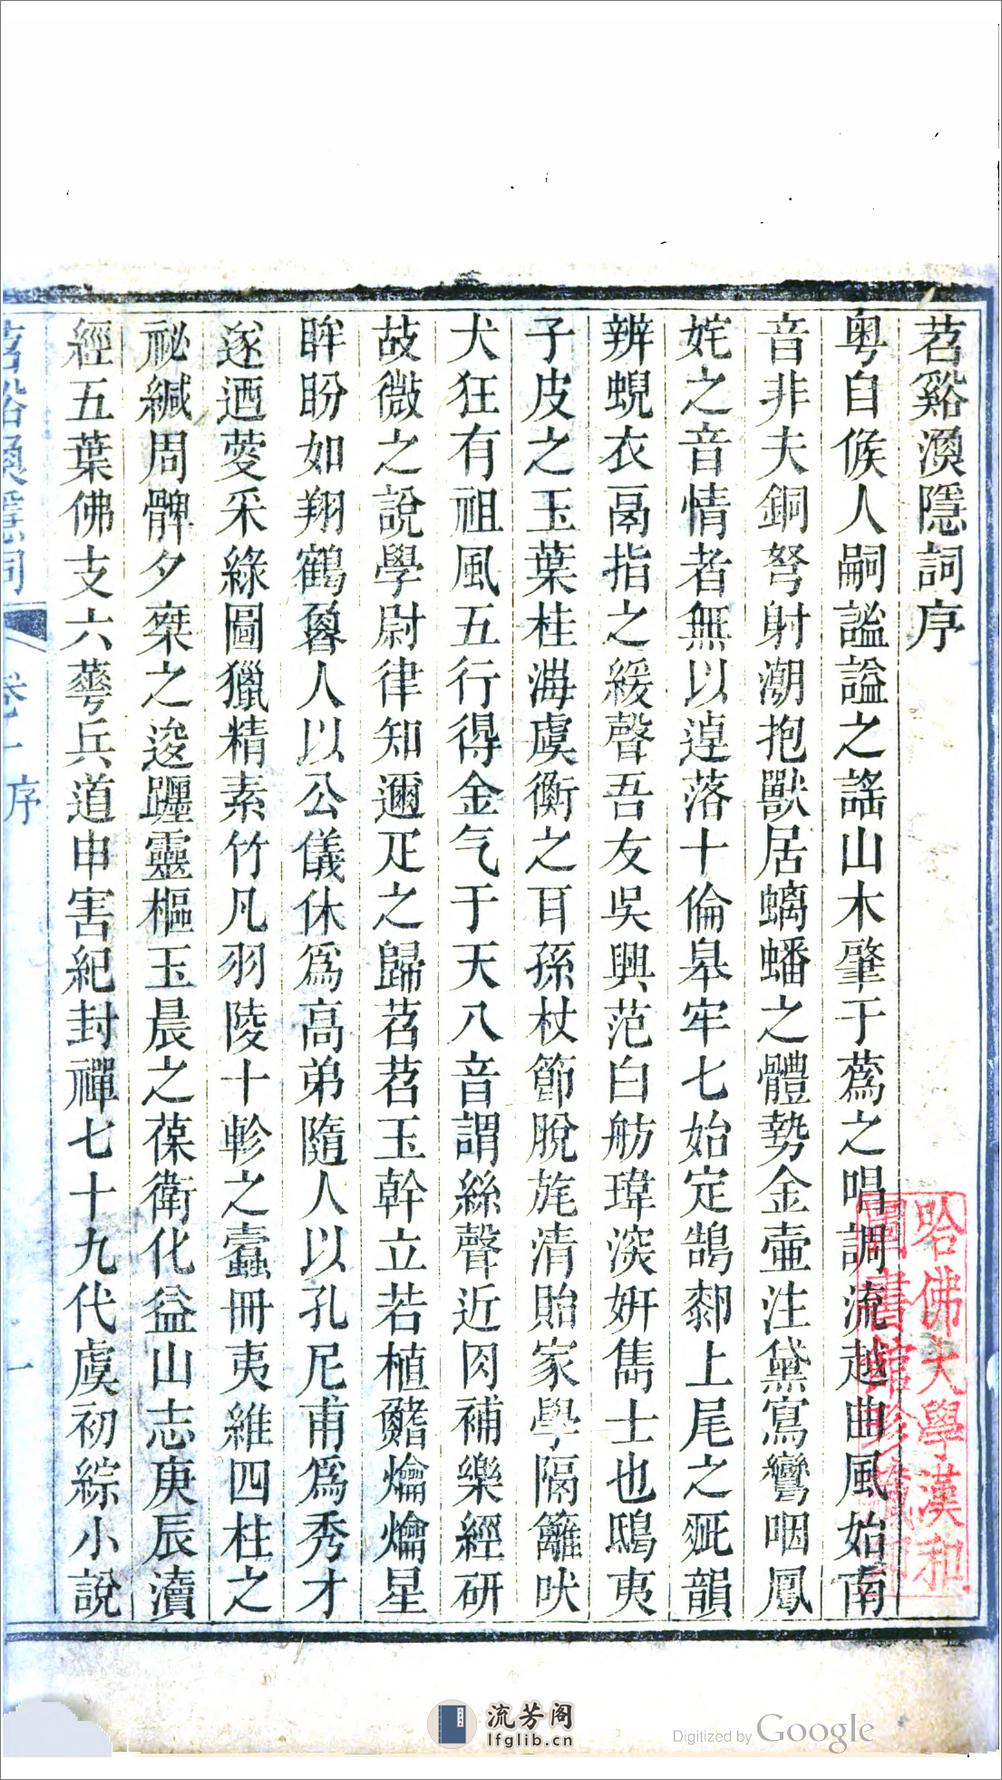 苕谿漁隱詞序
粵自候人嗣謐謐之謠山木肇于蒍之唱調流越曲風始南
音非夫銅弩射潮抱獸居螭蟠之體勢金壷注黛寫鸞咽鳳
姹之音情者無以逴落十倫皋牢七始定鵠郟上尾之疵韻
辨蜺衣鬲指之緩聲吾友吳興范白舫瑋深妍雋士也鴟夷
子皮之玉葉桂海虞衡之耳孫杖節脫旄清貽家學隔籬吠
犬狂有祖風五行得金气于天八音謂絲聲近肉補樂經研
故微之說學尉律知邇疋之歸苕苕玉幹立若植鰭爚爚星
眸盼如翔鶴魯人以公儀休爲高弟隨人以孔尼甫爲秀才
遂迺荌采綠圖獵精素竹凡羽陵十軫之蠧冊夷維四柱之
祕緘周髀夕桀之逡躔靈樞玉晨之葆衛化益山志庚辰瀆
經五葉佛支六蕚兵道申害紀封禪七十九代虞初綜小說
苕谿漁隱詞
卷一序
一
哈佛大學漢和
圖書館珍藏印
流芳阁
lfglib.cn
Digitized by Google